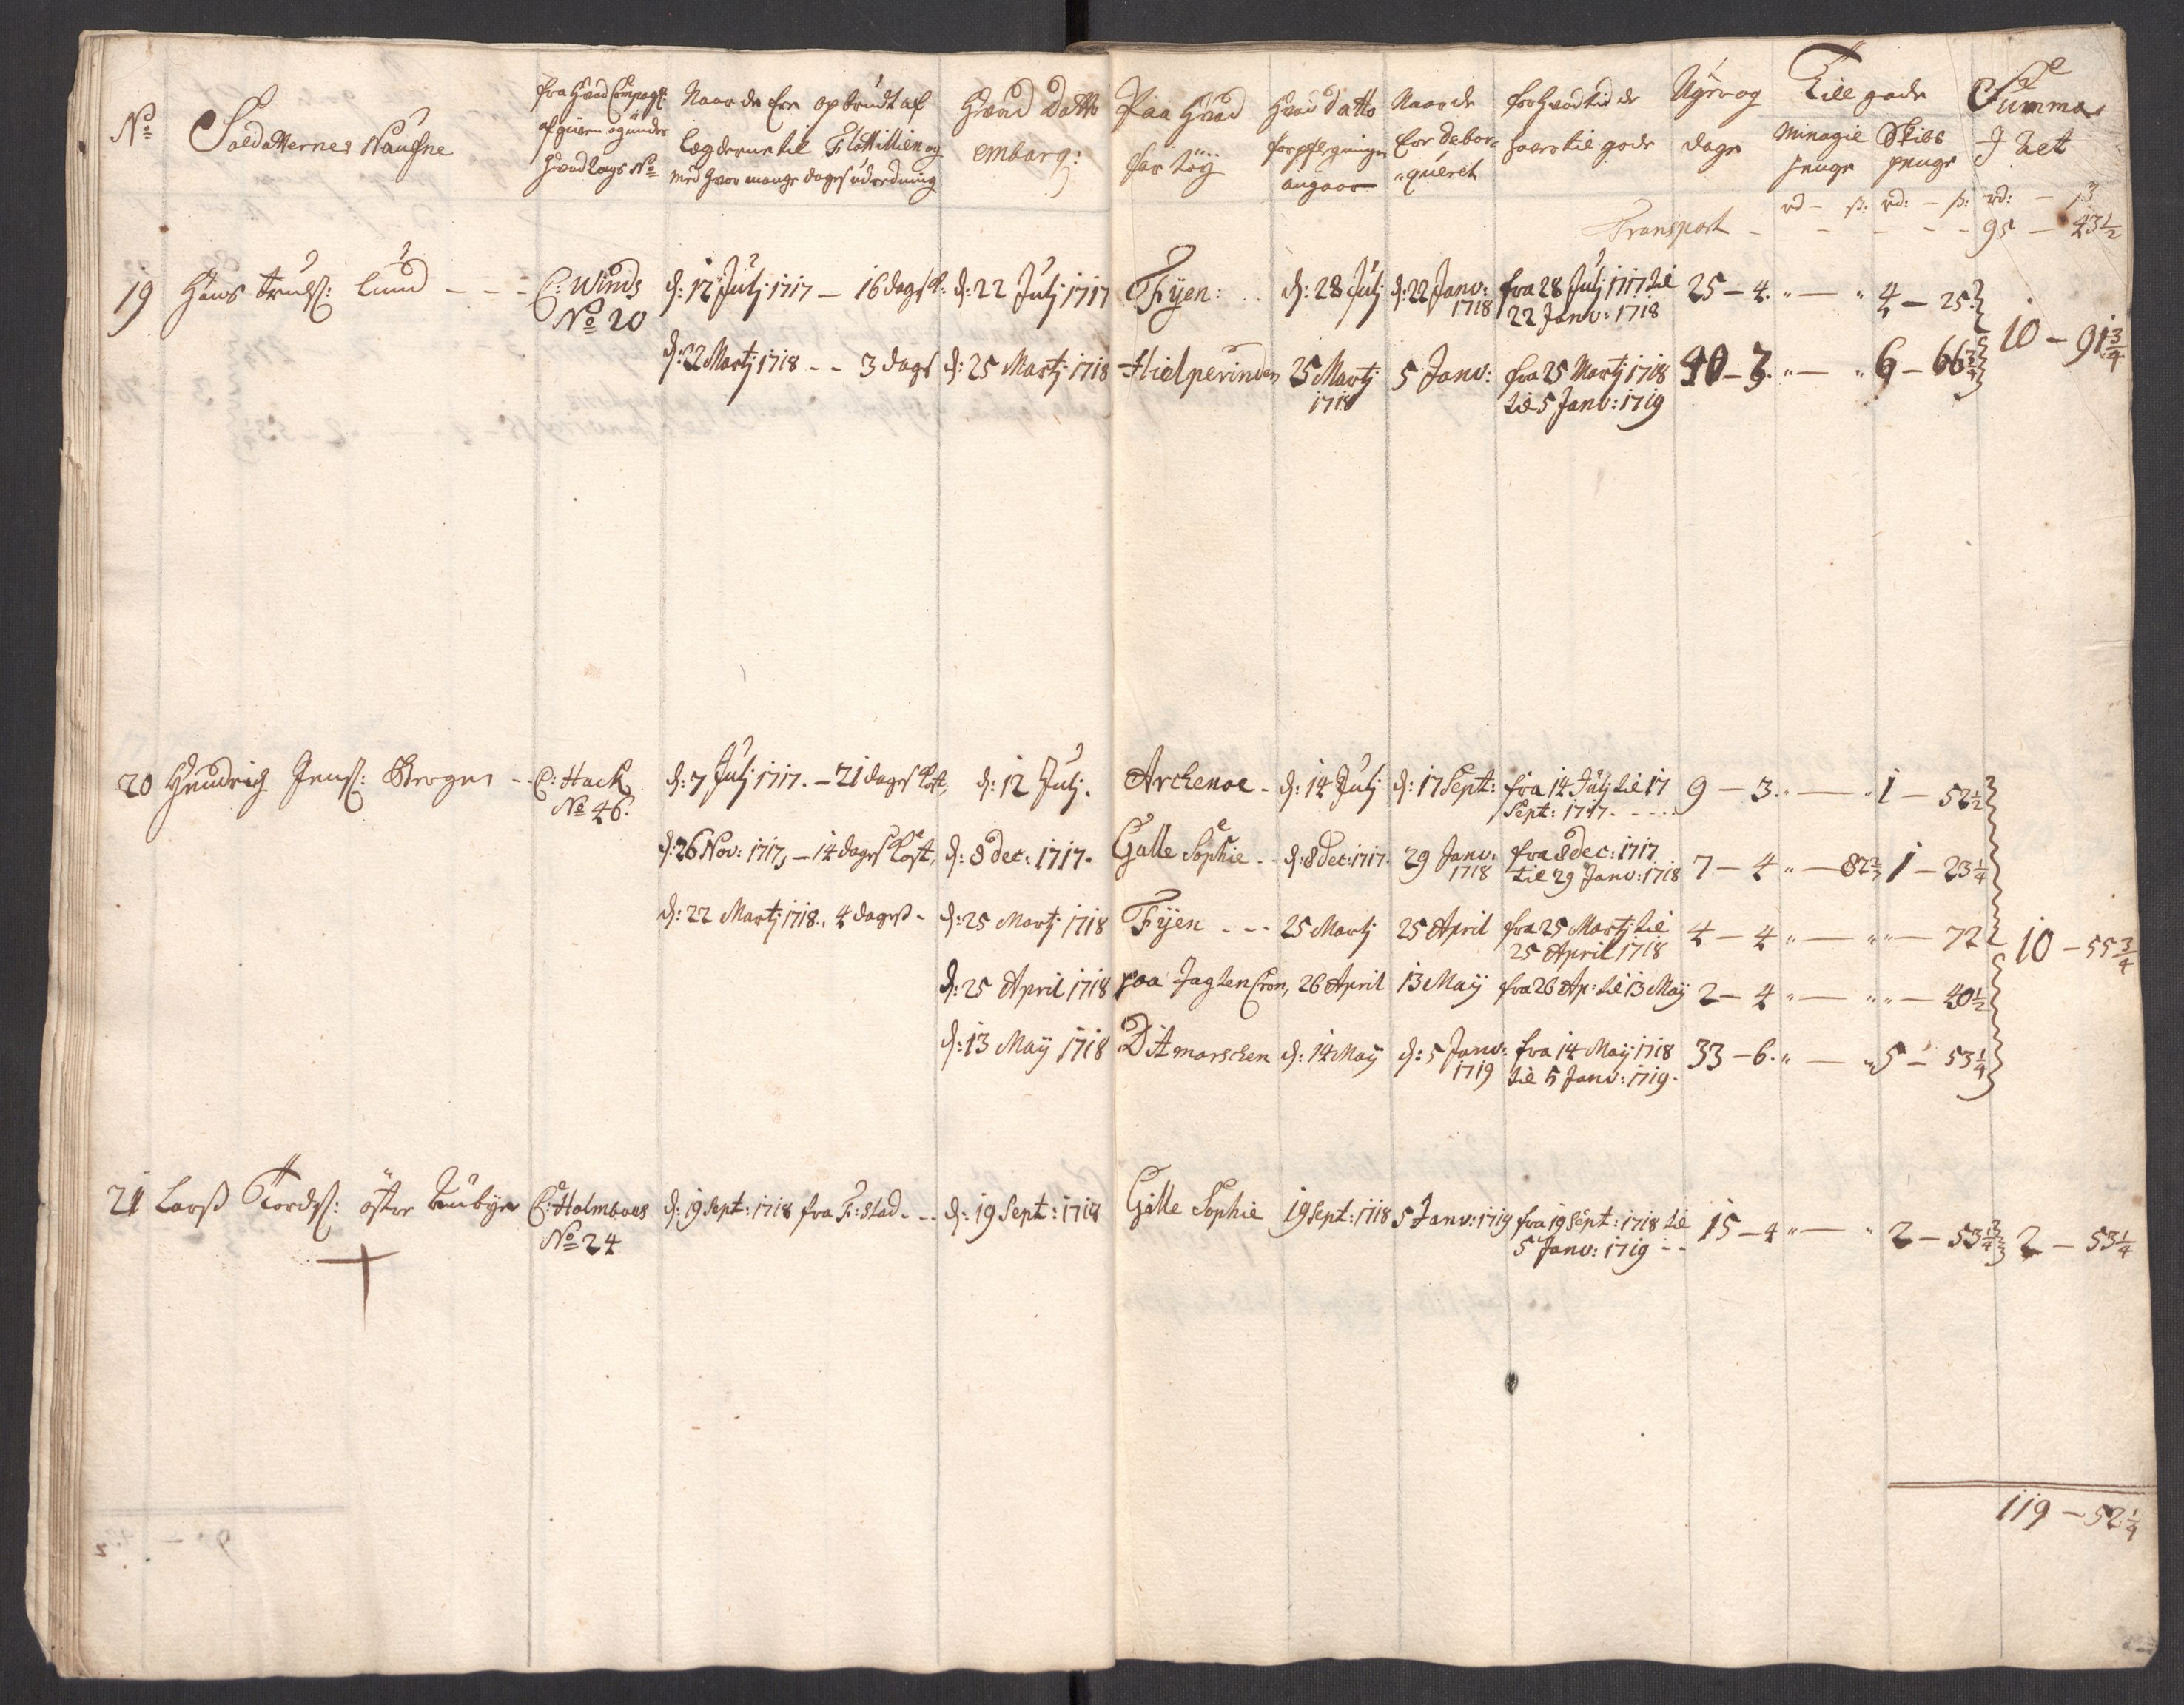 No Soldatternes Naufne
fra Hvad Compagt: afgiven og under Hvad Legs No
Naar de Ere opbrudt af Legderne til Flottillien og med hvor mange dages udredning
Hvad Datto embarq:
Paa Hvad fartöÿ
Hvad datto forpflegningen angaar
Naar de Er debarqueret
for hvad tid de haver til gode
Uger og dage
Till gode
Minagie penge rd – ß:
Skibs penge rd: – ß:
Summa I Et rd: – ß
Transport – – – – – 95 – 43½
19 Hans Trulss: Lund – – – C: Winds No 20 d: 17 Julj 1717 – 16 dags K: d: 22 Julj 1717 Fÿen: d: 28 Julj d: 22 Janv: 1718 fra 28 Julj 1717 til 22 Janv: 1718 25 – 4. " — " 4 – 25
d: 22 Martj 1718 – – 3 dags d: 25 Martj 1718 Hielperinden 25 Martj 1718 5 Janv: fra 25 Martj 1718 til 5 Janv: 1719 40 – 7. " — " 6 – 66¾ 10 – 91¾
20 Hendrich Jenss: Berger – – C: Hack No 46. d: 7 Julj 1717. – 21 dags Kost, d: 12 Julj. Archenoe – d: 14 Julj d: 17 Sept: fra 14 Julj til 17 Sept: 1717. 9 – 3. " — " 1 – 52½
d: 26 Nov: 1717, – 14 dags Kost, d: 8 dec: 1717. Galle Sophie – – d: 8 dec: 1717. 29 Janv: 1718 fra 8 dec: 1717 til 29 Janv: 1718 7 – 4 " — 82 1 – 23¼
d: 22 Martj 1718., 4 dags – d: 25 Martj 1718 Fÿen – – – 25 Martj 25 April fra 25 Martj til 25 April 1718 4 – 4 " — " " — 72 10 – 55¾
d: 25 April 1718 paa Jagten Cron, 26 April 13 Maÿ fra 26 Ap: til 13 Maÿ 2 – 4 " — " " — 40½
d: 13 Maÿ 1718 Ditmarschen d: 14 Maÿ d: 5 Janv: 1719 fra 14 Maÿ 1718 til 5 Janv: 1719. 33 – 6. " — " 5 – 53¼
21 Larss Tordss: öster C: Holmboes No 24 d: 19 Sept: 1718 fra F: stad – – d: 19 Sept: 1718 Galle Sophie 19 Sept: 1718 5 Janv: 1719 fra 19 Sept: 1718 til 5 Janv: 1719 – – 15 – 4 " — " 2 – 53¼ 2 – 53¼
119 – 52¼